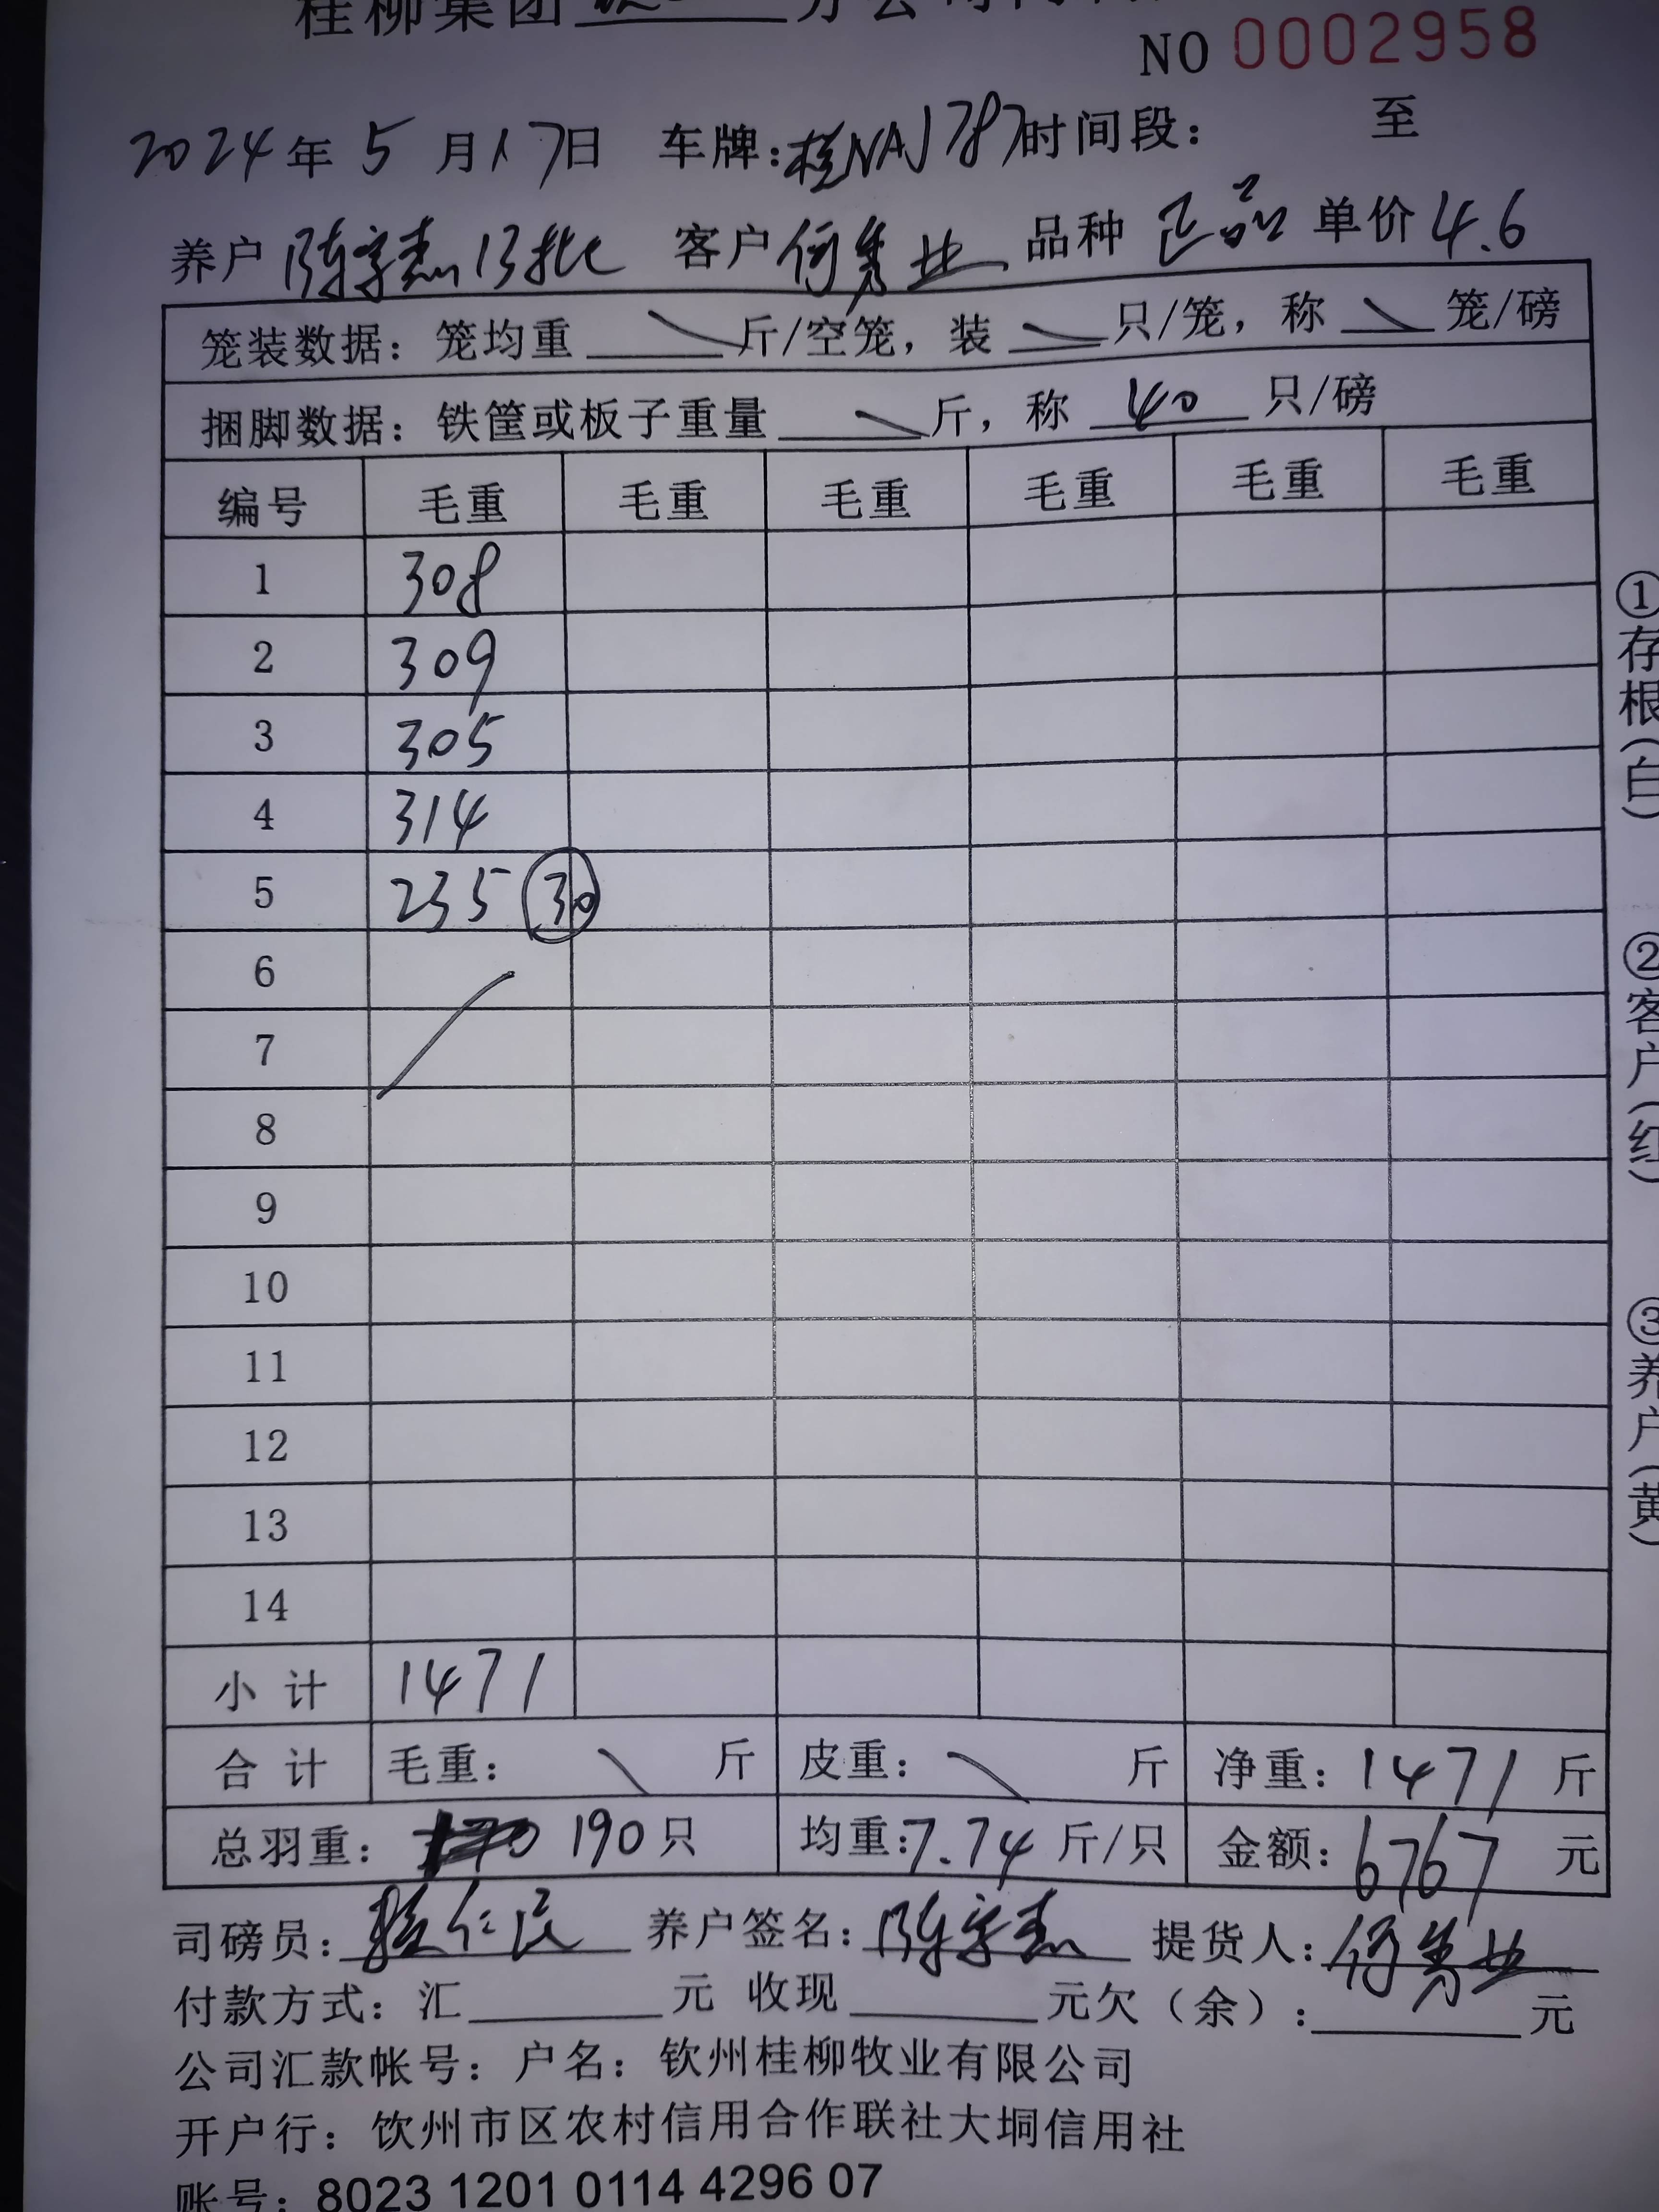 桂柳集团 分公司
NO 0002958
2024年5月17日 车牌:桂NAJ787 时间段: 至
养户 陈字杰13批 客户 何隽业 品种 正品 单价 4.6
笼装数据: 笼均重 斤/空笼, 装 只/笼, 称 笼/磅
捆脚数据: 铁筐或板子重量 斤, 称 40 只/磅
编号 毛重 毛重 毛重 毛重 毛重 毛重
1 308
2 309
3 305
4 314
5 235 30
6
7
8
9
10
11
12
13
14
小计 1471
合计 毛重: 斤 皮重: 斤 净重: 1471 斤
总羽重: 190只 均重:7.74 斤/只 金额: 6767 元
司磅员: 仁民 养户签名: 陈字杰 提货人: 何隽业
付款方式: 汇 元 收现 元欠(余): 元
公司汇款帐号: 户名: 钦州桂柳牧业有限公司
开户行: 饮州市区农村信用合作联社大垌信用社
账号: 8023 1201 0114 4296 07
①存根(白)
②客户(红)
③养户(黄)